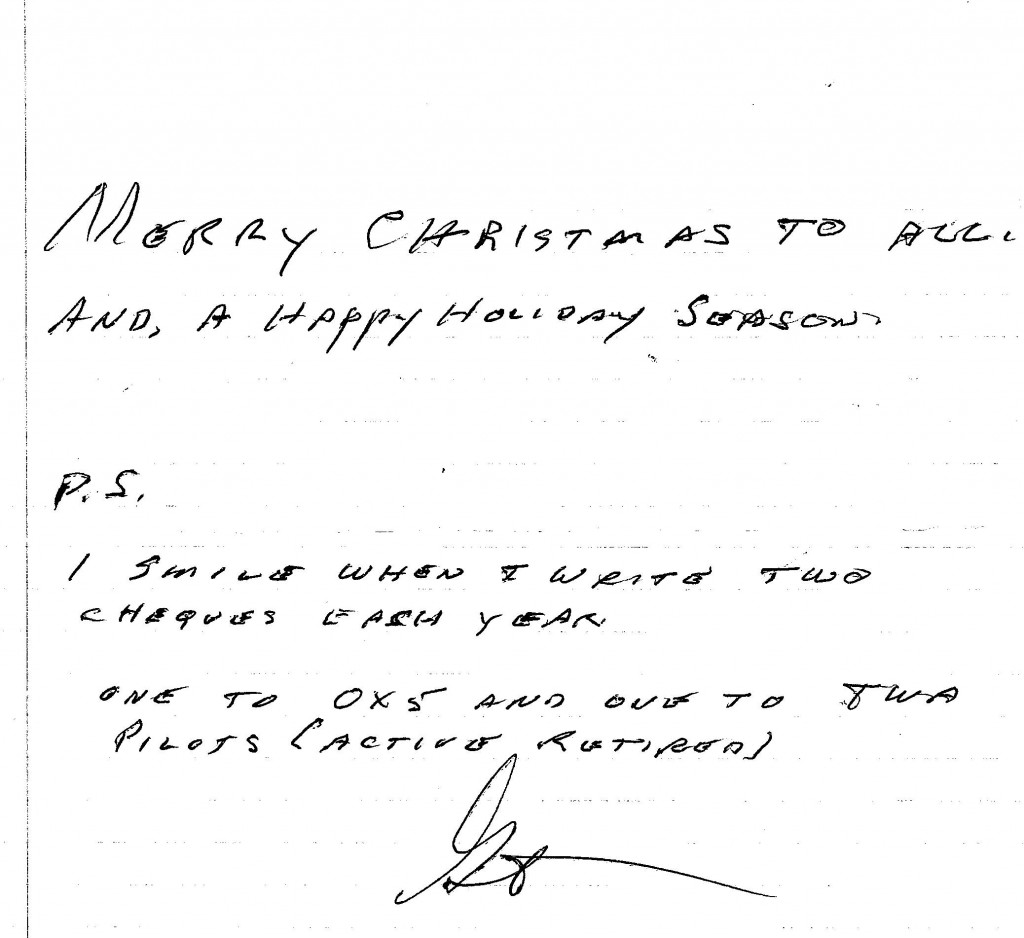 MERRY CHRISTMAS TO ALL.
AND, A HAPPY HOLIDAY SEASON.
P.S.
I SMILE WHEN I WRITE TWO
CHEQUES EACH YEAR.
ONE TO OX5 AND ONE TO TWA
PILOTS (ACTIVE RETIRED)